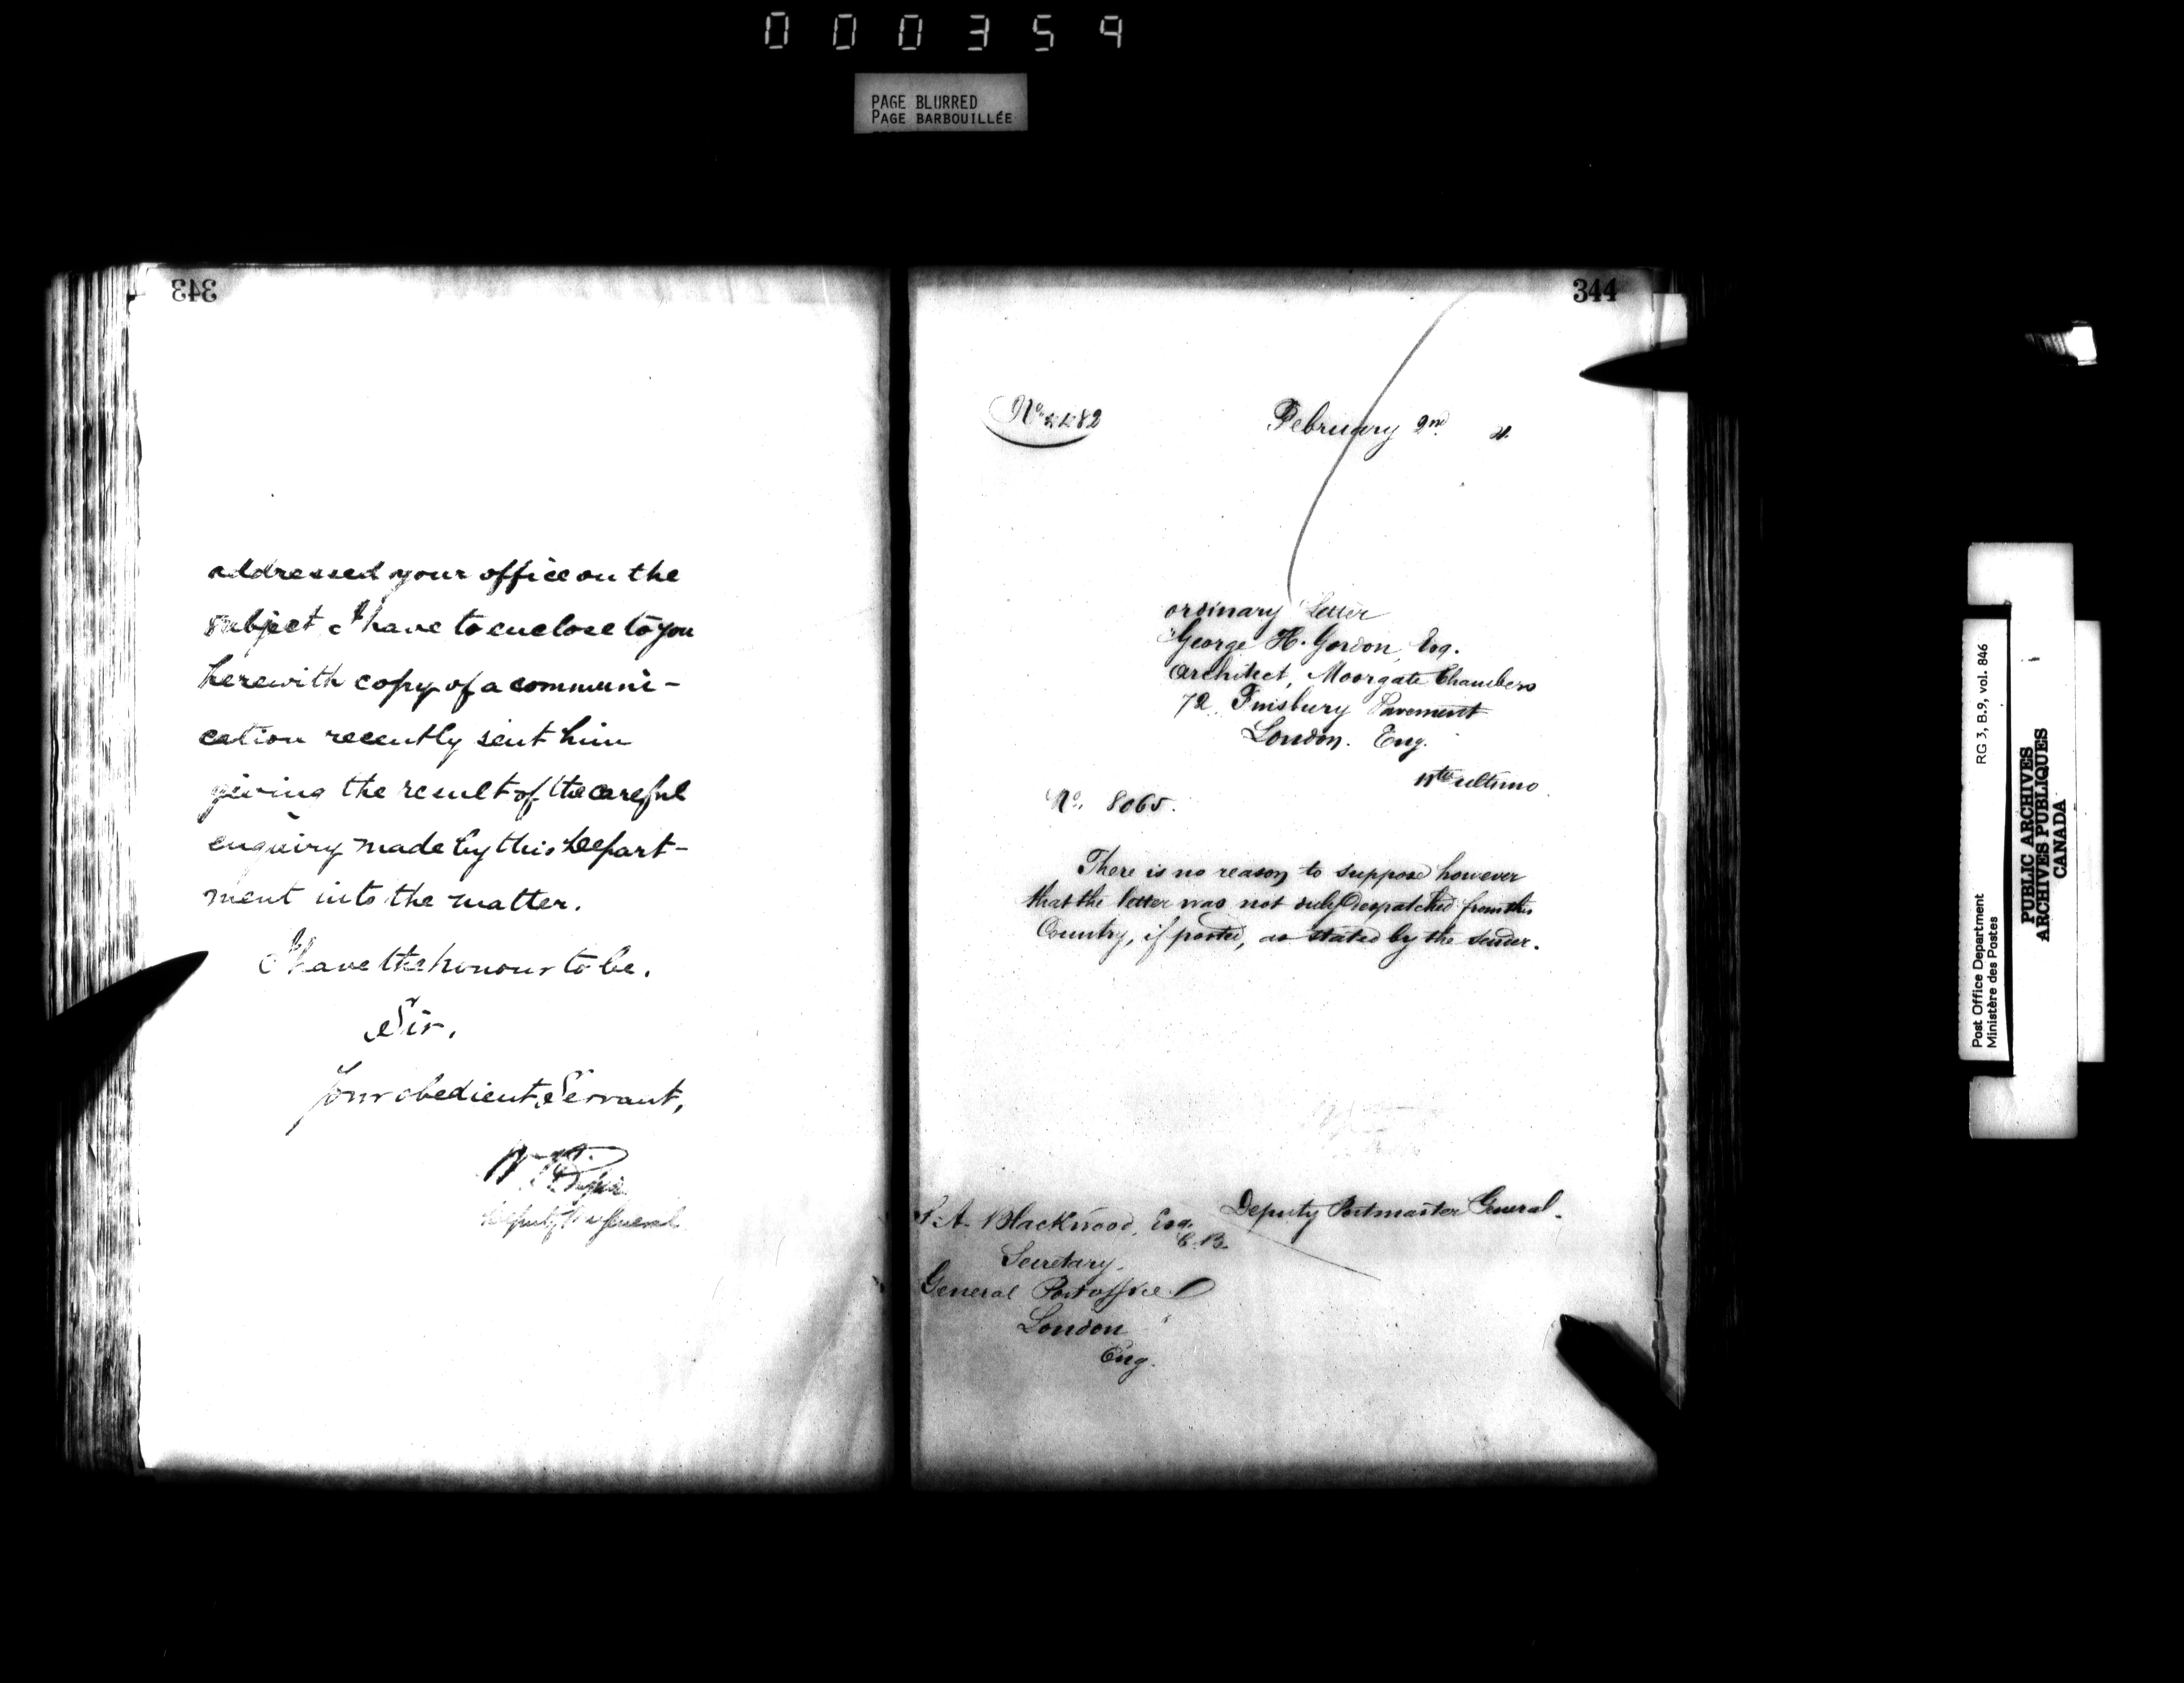 000359
PAGE BLURRED
PAGE BARBOUILLÉE
343
addressed your office on the
subject I have to enclose to you
herewith copy of a communi-
cation recently sent him
giving the result of the careful
enquiry made by this Depart-
ment into the matter.
I have the honour to be.
Sir,
Your obedient Servant,
Deputy
344
February 2nd
ordinary Letter
"George H. Gordon, Esq.
Architect, Moorgate Chambers
72. Finsbury Pavement
London. Eng.
ultimo
No. 8065.
There is no reason to suppose however
that the letter was not duly despatched from this
Country, if posted, as stated by the sender.
Deputy Postmaster General.
A. Blackwood, Esq.
C.B.
Secretary,
General Post office
London
Eng.
RG 3, B.9, vol. 846
Post Office Department
Ministère des Postes
PUBLIC ARCHIVES
ARCHIVES PUBLIQUES
CANADA